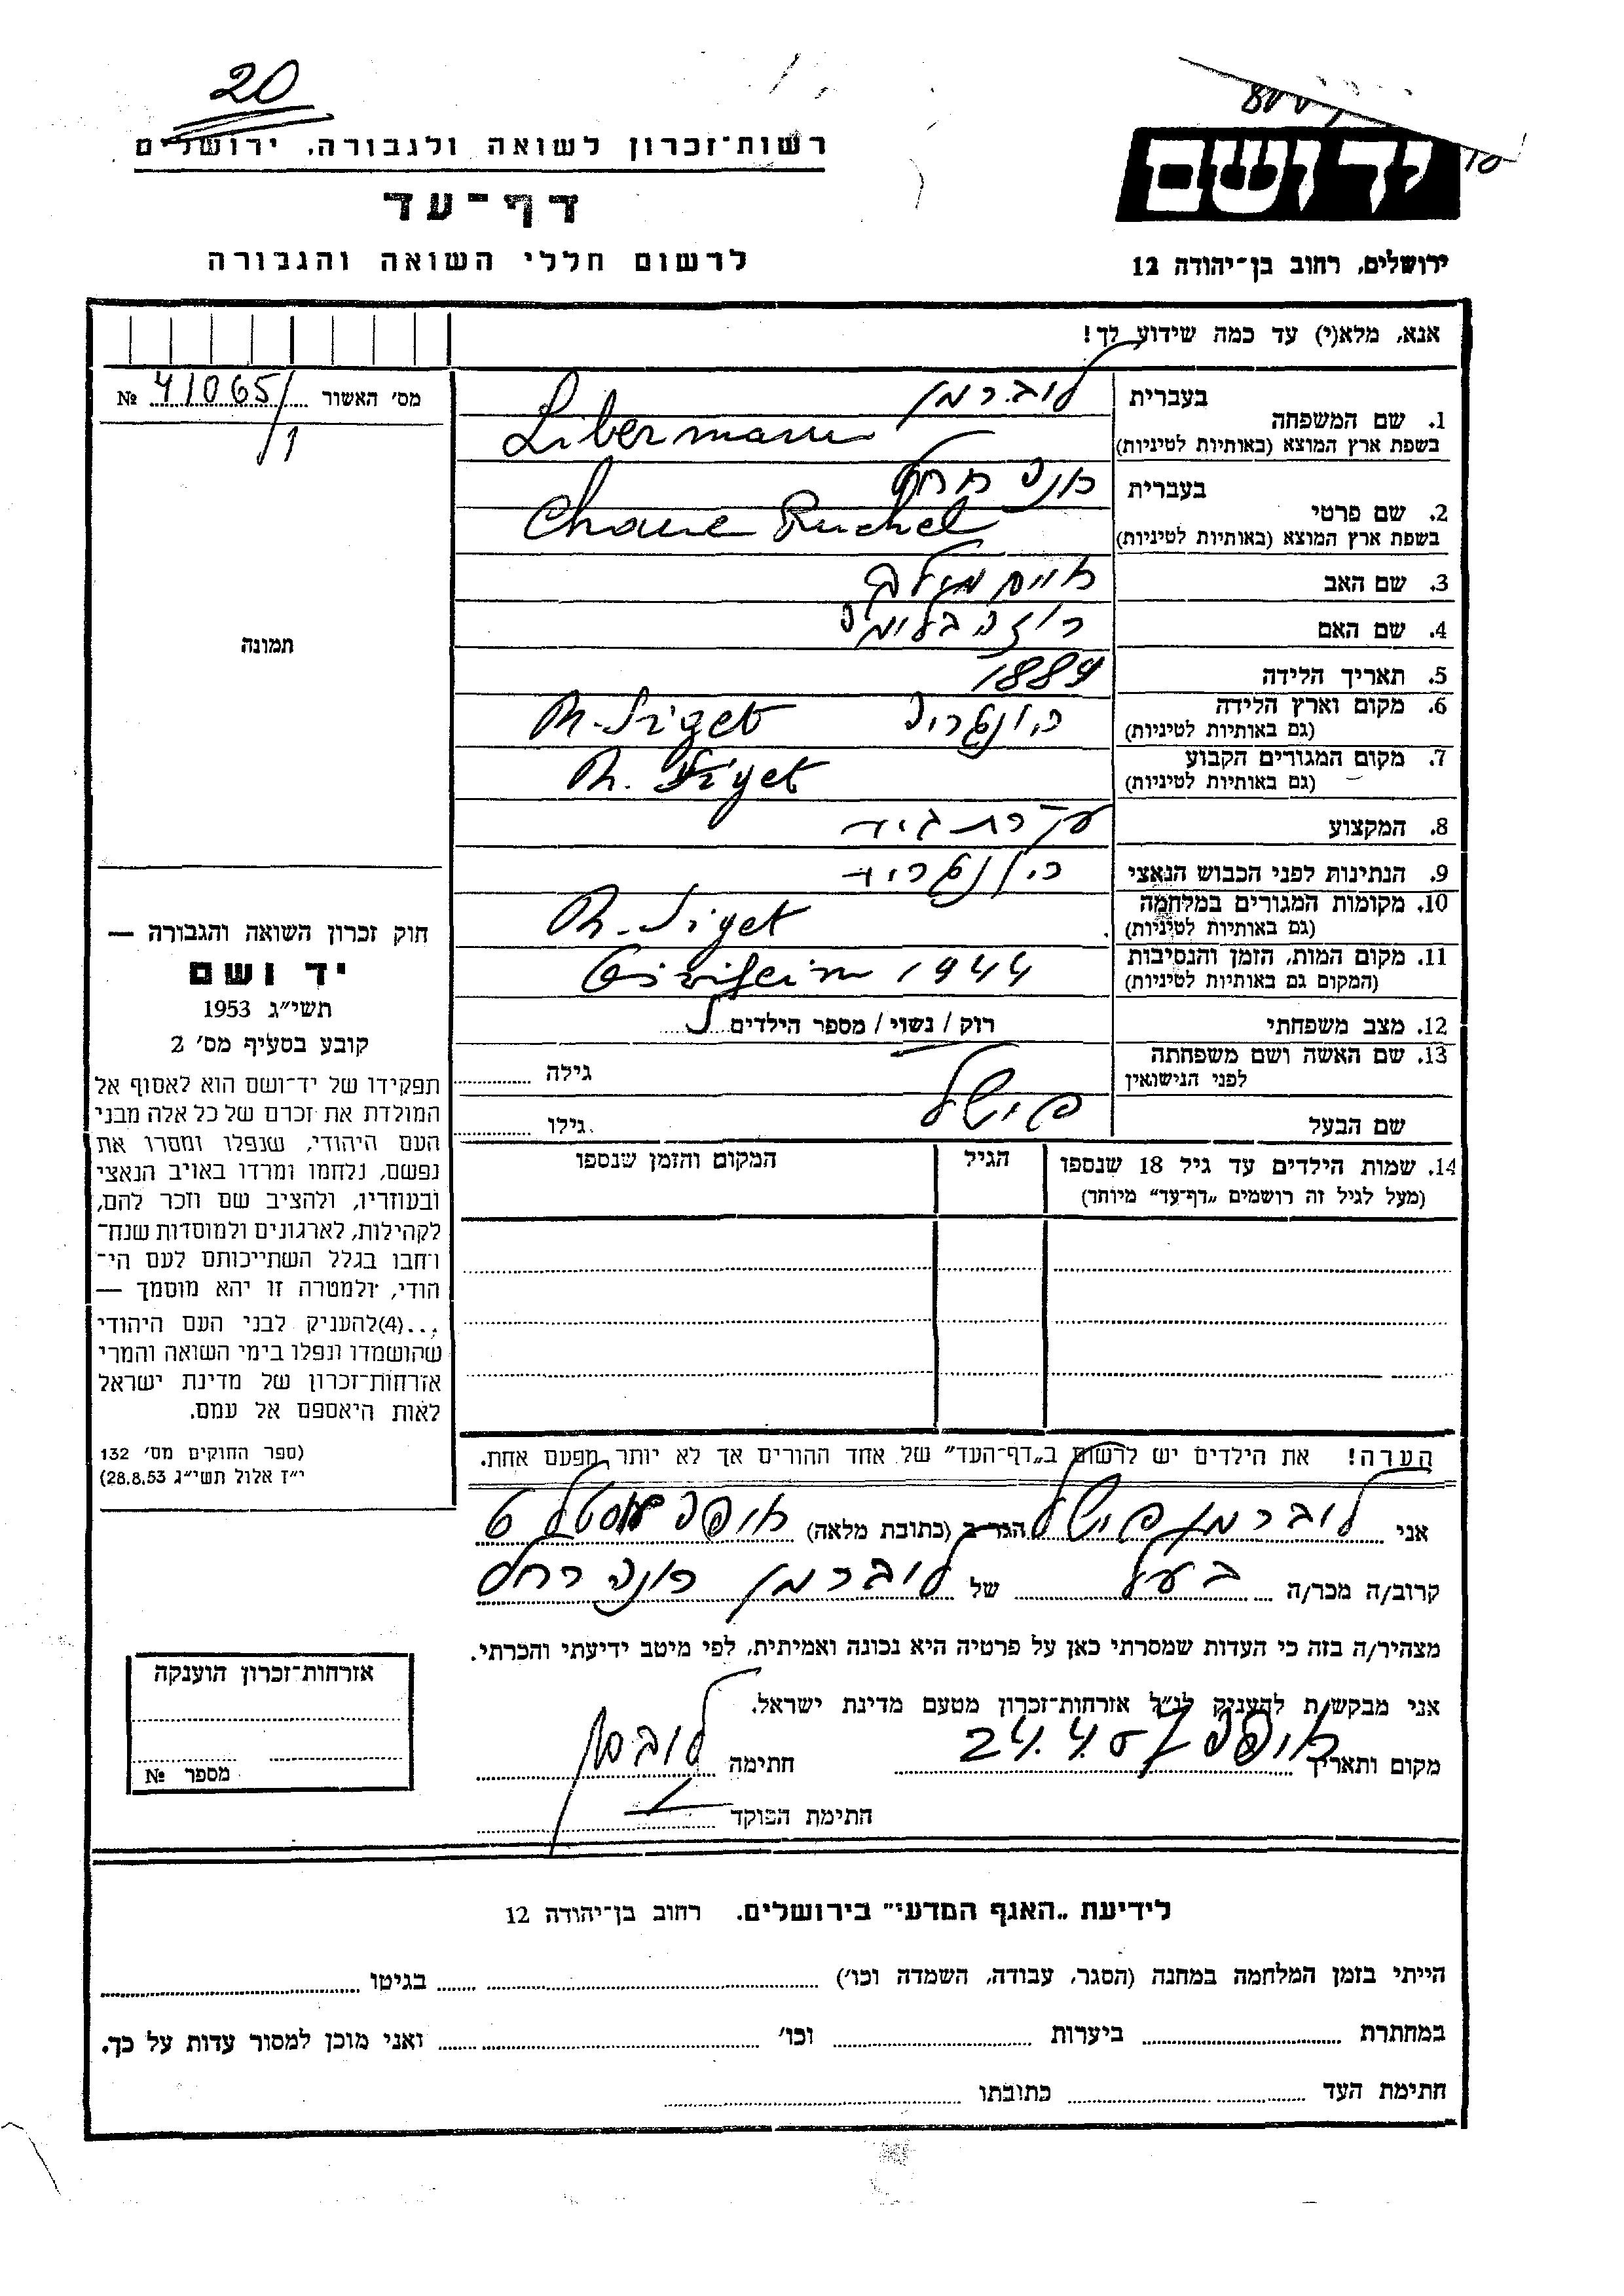 20
רשות־זכרון לשואה ולגבורה, ירושלים
דף־עד
לרשום חללי השואה והגבורה
יד ושם
ירושלים, רחוב בן־יהודה 12
אנא, מלא(י) עד כמה שידוע לך!
מס' האשור № 41065/1
תמונה
1. שם המשפחה
בעברית ליברמן
בשפת ארץ המוצא (באותיות לטיניות) Libermann
2. שם פרטי
בעברית חנה רחל
בשפת ארץ המוצא (באותיות לטיניות) Chane Ruchel
3. שם האב חיים
4. שם האם רוזה בלומה
5. תאריך הלידה 1889
6. מקום וארץ הלידה
(גם באותיות לטיניות) הונגריה M. Siget
7. מקום המגורים הקבוע
(גם באותיות לטיניות) M. Siget
8. המקצוע עקרת בית
9. הנתינות לפני הכבוש הנאצי הונגרית
10. מקומות המגורים במלחמה
(גם באותיות לטיניות) M. Siget
11. מקום המות, הזמן והנסיבות
(המקום גם באותיות לטיניות) 1944
12. מצב משפחתי רוק / נשוי / מספר הילדים
13. שם האשה ושם משפחתה
לפני הנישואין גילה
שם הבעל פישל גילו
14. שמות הילדים עד גיל 18 שנספו
(מעל לגיל זה רושמים „דף־עד" מיוחד)
הגיל
המקום והזמן שנספו
הערה! את הילדים יש לרשום ב„דף־העד" של אחד ההורים אך לא יותר מפעם אחת.
חוק זכרון השואה והגבורה —
יד ושם
תשי״ג 1953
קובע בסעיף מס' 2
תפקידו של יד־ושם הוא לאסוף אל
המולדת את זכרם של כל אלה מבני
העם היהודי, שנפלו ומסרו את
נפשם, נלחמו ומרדו באויב הנאצי
ובעוזריו, ולהציב שם וזכר להם,
לקהילות, לארגונים ולמוסדות שנח־
רחבו בגלל השתייכותם לעם הי־
הודי, ולמטרה זו יהא מוסמך —
...(4)להעניק לבני העם היהודי
שהושמדו ונפלו בימי השואה והמרי
אזרחות־זכרון של מדינת ישראל
לאות היאספם אל עמם.
(ספר החוקים מס' 132
י״ז אלול תשי״ג 28.8.53)
אני ליברמן פישל הגר ב (כתובת מלאה) חיפה
קרוב/ה מכר/ה בעל של ליברמן חנה רחל
מצהיר/ה בזה כי העדות שמסרתי כאן על פרטיה היא נכונה ואמיתית, לפי מיטב ידיעתי והכרתי.
אני מבקש/ת להעניק לנ״ל אזרחות־זכרון מטעם מדינת ישראל.
מקום ותאריך חיפה 24.4.57 חתימה ליברמן
חתימת הפוקד
אזרחות־זכרון הוענקה
מספר №
לידיעת „האגף המדעי" בירושלים. רחוב בן־יהודה 12
הייתי בזמן המלחמה במחנה (הסגר, עבודה, השמדה וכו') בגיטו
במחתרת ביערות וכו' ואני מוכן למסור עדות על כך.
חתימת העד כתובתו